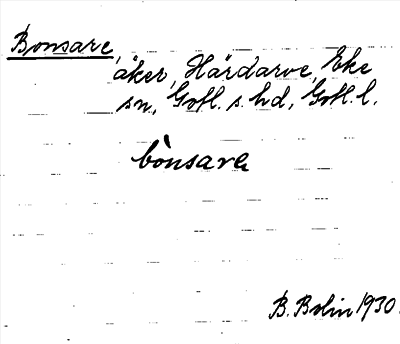 Bonsare,
åker, Hårdarve, Eke
sn, Gotl. s. hd, Gotl. l.
bònsare
B. Bolin 1930.